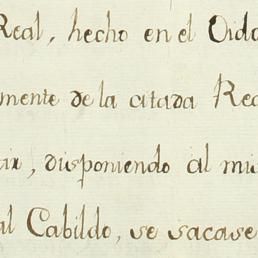 Real, hecho en el Oido
mente de la citada Rea
tir, disponiendo al mis
al Cabildo, se sacase